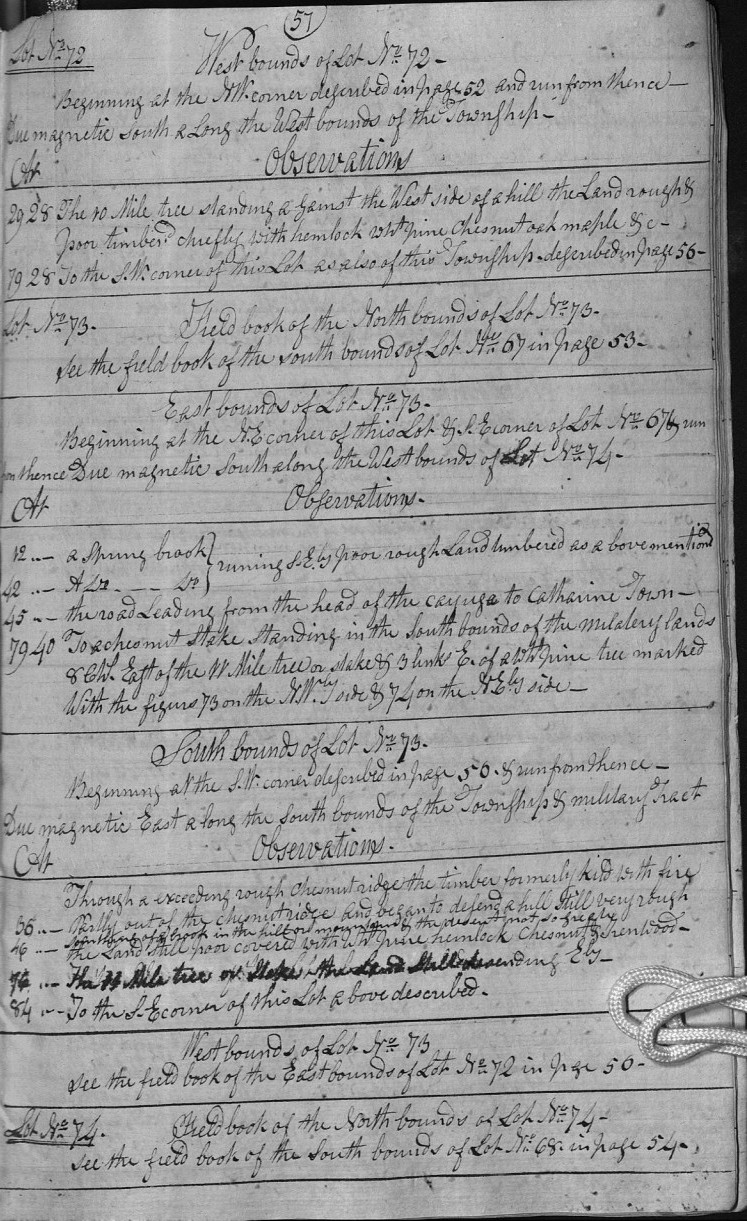 57
Lot Nro 72
West bounds of Lot Nro 72 -
Beginning at the N.W. corner described in page 52 and run from thence -
Due magnetic south along the West bounds of the Township -
At Observations
29 28 The 10 Mile tree standing against the West side of a hill the Land rough &
poor timberd chiefly with hemlock wht pine Chesnut oak maple &c -
79 28 To the S.W. corner of this Lot as also of this Township described in page 56 -
Lot Nro 73. Field book of the North bounds of Lot Nro 73.
see the field book of the south bounds of Lot Nro 67 in page 53 -
East bounds of Lot Nro 73. -
Beginning at the N.E corner of this Lot & S.E corner of Lot Nro 67 & run
from thence Due magnetic South along the West bounds of Lot Nro 74 -
At Observations -
12 .. - a Spring brook } runing S.E.ly poor rough Land timbered as above mentiond
42 .. - A Do. - - Do
45 .. - the road Leading from the head of the cayuga to Catharine Town -
79 40 To a chesnut Stake Standing in the South bounds of the milatery lands
8 Chs. East of the 11 Mile tree or stake & 3 links E. of a wht pine tree marked
With the figurs 73 on the N.W.ly side & 74 on the N.E.ly side -
South bounds of Lot Nro 73.
Beginning at the S.W. corner described in page 56 - & run from thence -
Due magnetic East along the South bounds of the Township & military Tract
At Observations.
Through a exceeding rough chesnut ridge the timber formerly kild with fire
36 .. - Partly out of the chesnut ridge and began to defend a hill still very rough
46 .. - brook in the hill & the descent not so great
the Land still poor covered with wht pine hemlock Chesnut & Irenwood -
76 .. - the 11 Mile tree or Stake the Land Still descending E.ly -
84 .. - To the S.E corner of this Lot above described.
West bounds of Lot Nro 73
see the field book of the East bounds of Lot Nro 72 in page 56 -
Lot Nro 74. Field book of the North bounds of Lot Nro 74 -
see the field book of the South bounds of Lot Nro 68 in page 54 -